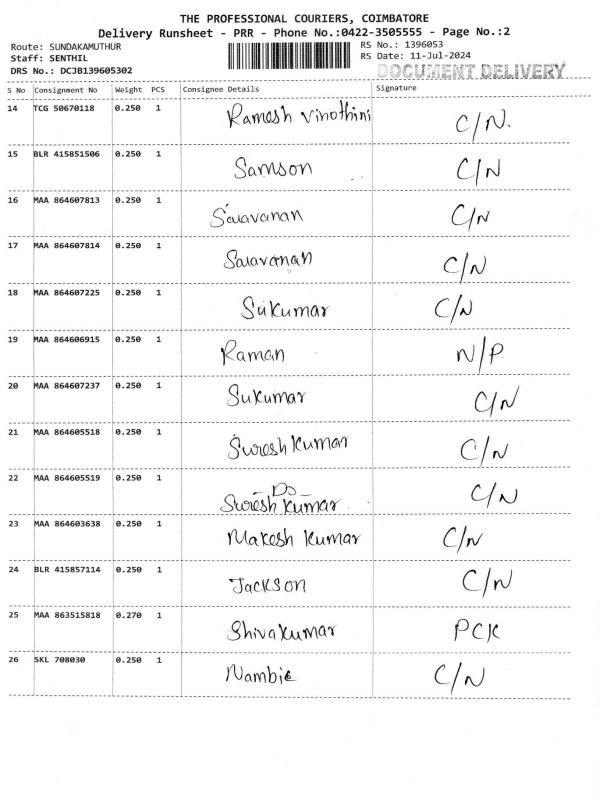 THE PROFESSIONAL COURIERS, COIMBATORE
Delivery Runsheet - PRR - Phone No.:0422-3505555 - Page No.:2
Route: SUNDAKAMUTHUR RS No.: 1396053
Staff: SENTHIL RS Date: 11-Jul-2024
DRS No.: DCJB139605302 DOCUMENT DELIVERY
S No Consignment No Weight PCS Consignee Details Signature
14 TCG 50670118 0.250 1 Ramesh Vinothini C/N.
15 BLR 415851506 0.250 1 Samson C/N
16 MAA 864607813 0.250 1 Saravanan C/N
17 MAA 864607814 0.250 1 Saravanan C/N
18 MAA 864607225 0.250 1 Sukumar C/N
19 MAA 864606915 0.250 1 Raman N/P.
20 MAA 864607237 0.250 1 Sukumar C/N
21 MAA 864605518 0.250 1 Suresh Kumar C/N
22 MAA 864605519 0.250 1 - Do - Suresh Kumar C/N
23 MAA 864603638 0.250 1 Makesh Kumar C/N
24 BLR 415857114 0.250 1 Jackson C/N
25 MAA 863515818 0.270 1 Shivakumar PCK
26 SKL 708030 0.250 1 Nambie C/N